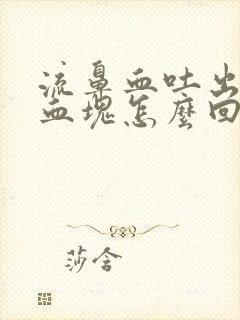 流鼻血吐出
血塊怎麼回
莎含